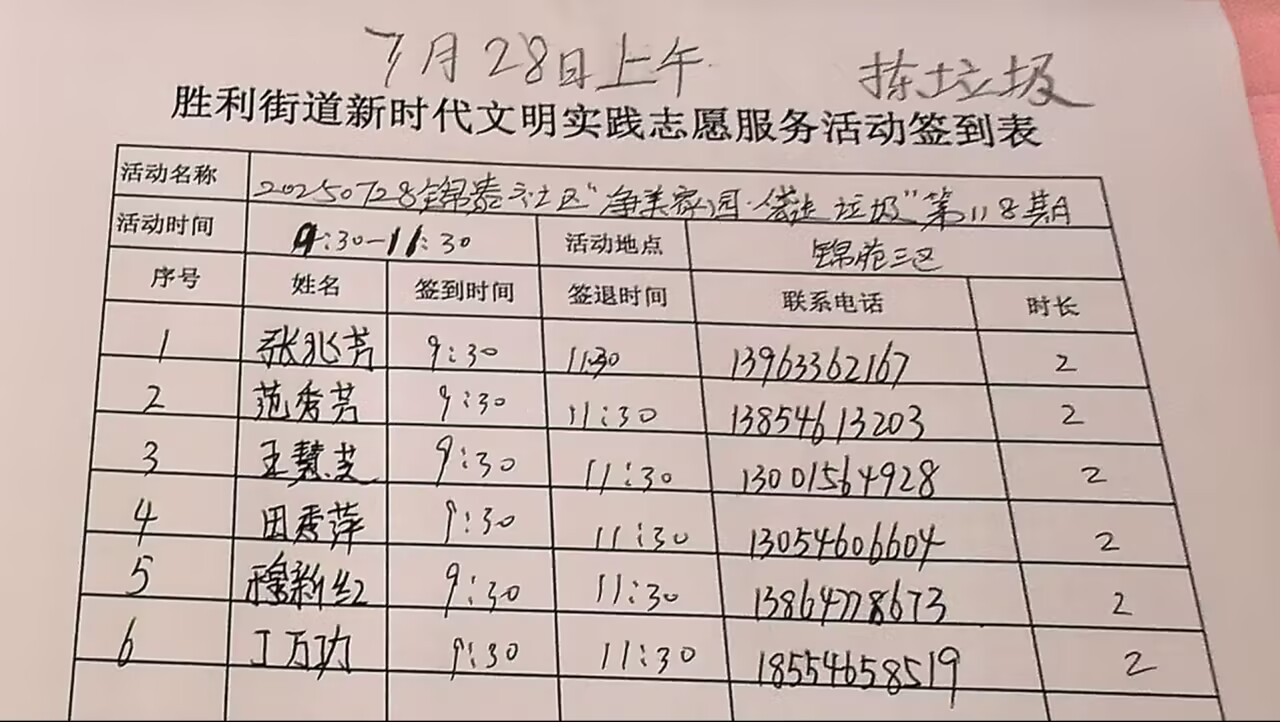 7月28日上午 拣垃圾
胜利街道新时代文明实践志愿服务活动签到表
活动名称 20250728锦泰社区“净美家园·垃圾”第118期A
活动时间 9:30-11:30 活动地点 锦苑三区
序号 姓名 签到时间 签退时间 联系电话 时长
1 张兆芳 9:30 11:30 13963362167 2
2 范秀芳 9:30 11:30 13854613203 2
3 王慧芝 9:30 11:30 13001564928 2
4 田秀萍 9:30 11:30 13054606604 2
5 穆新红 9:30 11:30 13864778673 2
6 丁万功 9:30 11:30 18554658519 2